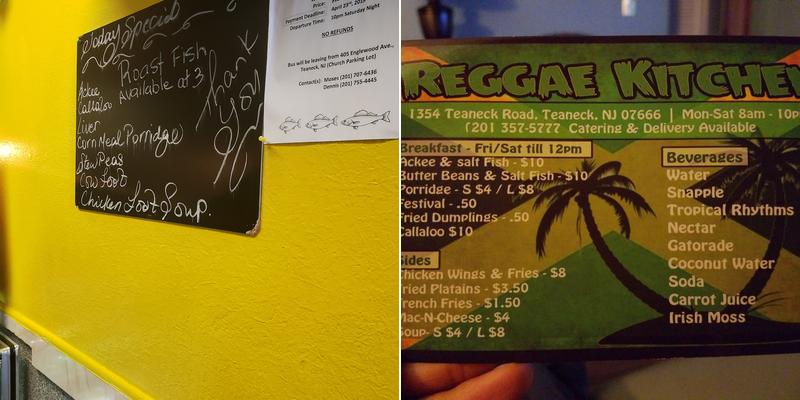 Today Special
Roast Fish
Available at 3
Thank
You
Ackee
Callaloo
Liver
Corn Meal Porridge
Stew Peas
Cow Foot
Chicken Foot Soup.
Payment Deadline:
April 23rd, 2019
Departure Time:
10pm Saturday Night
NO REFUNDS
Bus will be leaving from 405 Englewood Ave.,
Teaneck, NJ (Church Parking Lot)
Contact(s): Moses (201) 707-6436
Dennis (201) 755-4445
REGGAE KITCHEN
1354 Teaneck Road, Teaneck, NJ 07666 | Mon-Sat 8am - 10p
(201 357-5777 Catering & Delivery Available
Breakfast - Fri/Sat till 12pm
Ackee & salt Fish - $10
Butter Beans & Salt Fish - $10
Porridge - S $4 / L $8
Festival - .50
Fried Dumplings - .50
Callaloo $10
Sides
Chicken Wings & Fries - $8
Fried Platains - $3.50
French Fries - $1.50
Mac-N-Cheese - $4
Soup- S $4 / L $8
Beverages
Water
Snapple
Tropical Rhythms
Nectar
Gatorade
Coconut Water
Soda
Carrot Juice
Irish Moss